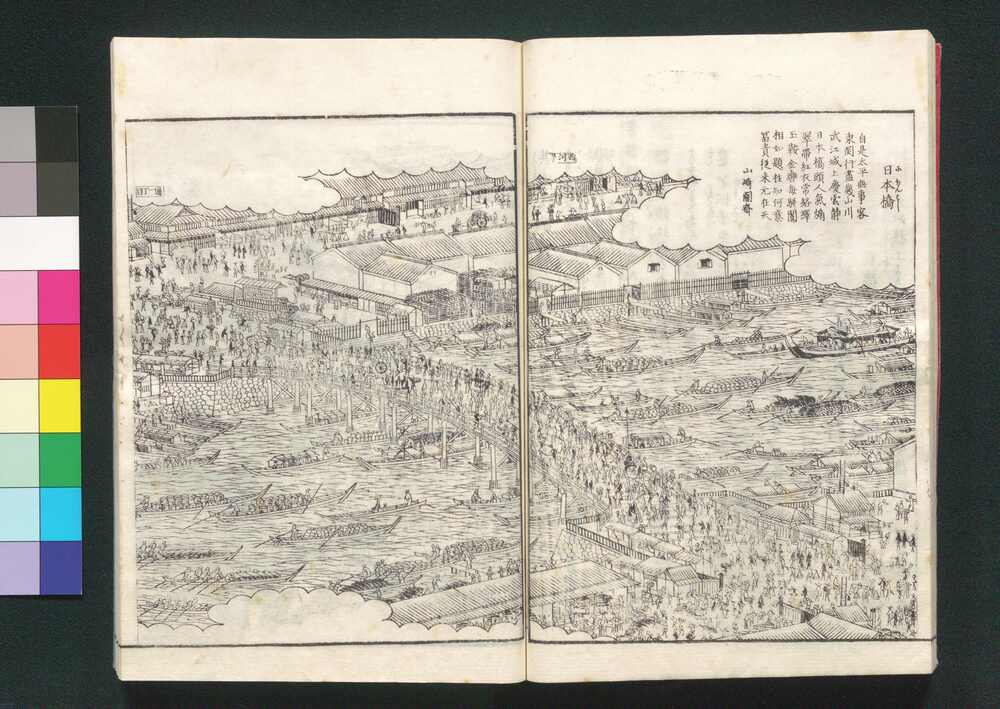 にほんばし
日本橋
自是太平無事客
東関行盡幾山川
武江城上慶雲静
日本橋頭人氣
翠帯紅衣常絡繹
玉鞍金轡毎駢闐
相如題柱知何意
冨貴従来元在天
山崎闇齋